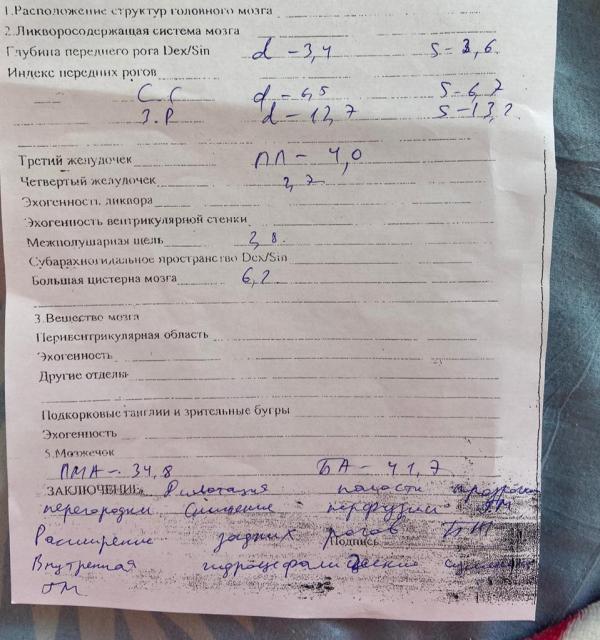 1.Расположение структур головного мозга
2.Ликворосодержащая система мозга
Глубина переднего рога Dex/Sin d - 3,4 S - 3,6
Индекс передних рогов
С. Г d - 6,5 S - 6,7
З. Р d - 12,7 S - 13,2
Третий желудочек ПП - 4,0
Четвертый желудочек 2,7
Эхогенность ликвора
Эхогенность вентрикулярной стенки
Межполушарная щель 2,8.
Субарахноидальное пространство Dex/Sin
Большая цистерна мозга 6,2
3.Вещество мозга
Перивентрикулярная область
Эхогенность
Другие отделы
Подкорковые ганглии и зрительные бугры
Эхогенность
5.Мозжечок
ПМА - 34,8 БА - 41,7
ЗАКЛЮЧЕНИЕ: Дилатация полости прозрачн
перегородки Снижение перфузии ГМ
Расширение задних рогов БЖ
Подпись
Внутренняя гидроцефалический
ГМ